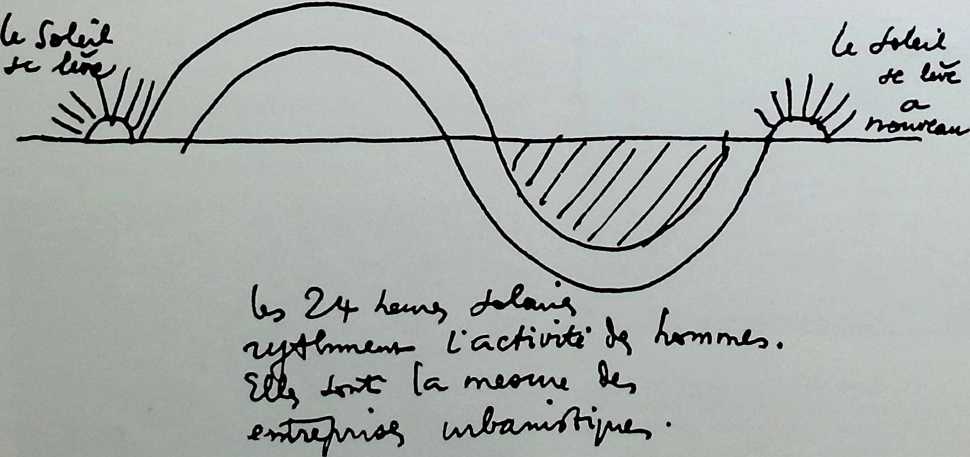 le soleil
se lève
le soleil
se lève
a
nouveau
les 24 heures solaires
rythment l'activité des hommes.
Elles sont la mesure des
entreprises urbanistiques.